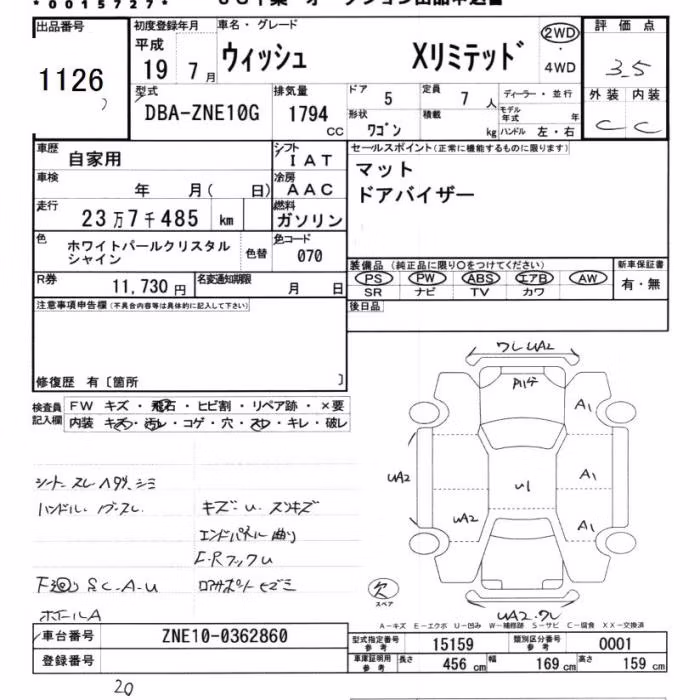 *0015727*
出品番号 1126
初度登録年月 平成 19 7月
車名・グレード ウィッシュ Xリミテッド
2WD・4WD
評価点 3.5
外装 C 内装 C
型式 DBA-ZNE10G
排気量 1794 CC
ドア 5
定員 7人
形状 ワゴン
積載 kg
ディーラー・並行
モデル年式 年
ハンドル 左・右
車歴 自家用
シフト IAT
車検 年 月( 日)
冷房 AAC
走行 23万7千485 km
燃料 ガソリン
色 ホワイトパールクリスタルシャイン
色替
色コード 070
R券 11,730円
名変通知期限 月 日
セールスポイント(正常に機能するものに限ります)
マット
ドアバイザー
装備品(純正品に限り○をつけてください)
PS PW ABS エアB AW
SR ナビ TV カワ
新車保証書 有・無
後日品
注意事項申告欄(不具合内容等は具体的に記入して下さい)
修復歴 有〔箇所 〕
検査員記入欄
FW キズ・飛石・ヒビ割・リペア跡・×要
内装 キズ・汚レ・コゲ・穴・スレ・キレ・破レ
シート スレ ヘタリ、シミ
ハンドル・ノブ・スレ
キズ・U・スンキズ
エンドパネル曲り
F下廻り SC-A-U
ホイールA
ワレUA2
A1
A1
A1
UA2
UA2
U1
UA2・ワレ
欠
スペア
A-キズ E-エクボ U-凹み W-補修跡 S-サビ C-腐食 XX-交換済
車台番号 ZNE10-0362860
登録番号
型式指定番号 参考 15159
類別区分番号 参考 0001
車庫証明用 参考 長さ 456 cm 幅 169 cm 高さ 159 cm
20